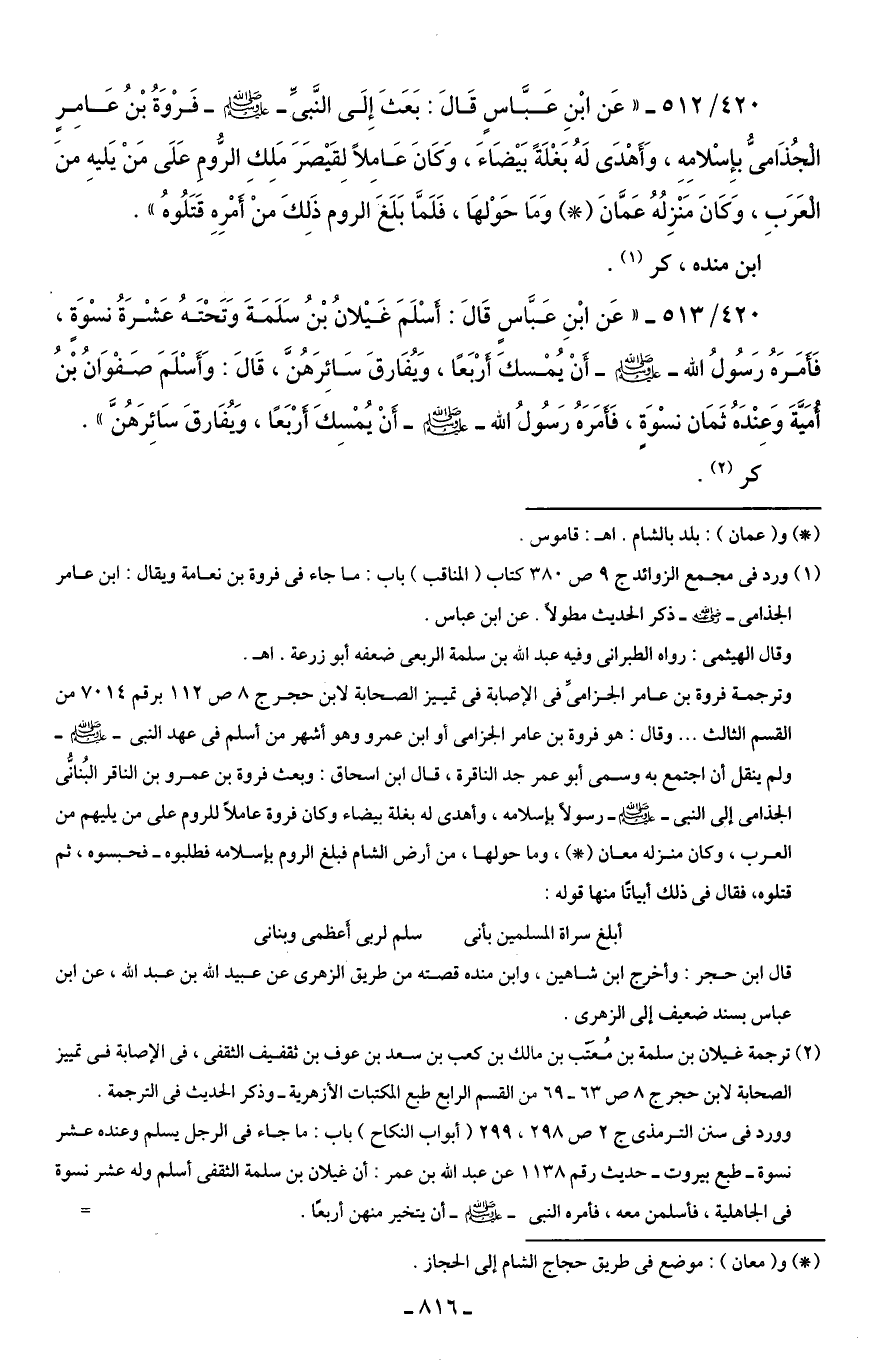 ٤٢٠/ ٥١٢ ـ « عَنِ ابْنِ عَـبَّـاسٍ قَالَ : بَعَثَ إِلَـى النَّبِىِّ ـ ﷺ ـ فَـرْوَةُ بْنُ عَـامِـرٍ
الْجُذَامِىُّ بِإِسْلَامِهِ ، وَأَهْدَى لَهُ بَغْلَةً بَيْضَاءَ ، وَكَانَ عَـامِلاً لِقَيْصَرَ مَلِكِ الرُّومِ عَلَى مَنْ يَلِيهِ مِنَ
الْعَرَبِ ، وَكَانَ مَنْزِلُهُ عَمَّانَ (*) وَمَا حَوْلَهَا ، فَلَمَّا بَلَغَ الروم ذَلِكَ مِنْ أَمْرِهِ قَتَلُوهُ » .
ابن منده ، كر (١) .
٤٢٠/ ٥١٣ ـ « عَنِ ابْنِ عَـبَّاسٍ قَالَ : أَسْلَمَ غَيْلَانُ بْنُ سَلَمَةَ وَتَحْتَهُ عَشْرَةُ نِسْوَةٍ ،
فَأَمَـرَهُ رَسُولُ الله ـ ﷺ ـ أَنْ يُمْـسِكَ أَرْبَعًا ، وَيُفَارِقَ سَـائِرَهُنَّ ، قَالَ : وَأَسْلَمَ صَـفْوَانُ بْنُ
أُمَيَّةَ وَعِنْدَهُ ثَمَانِ نِسْوَةٍ ، فَأَمَرَهُ رَسُولُ الله ـ ﷺ ـ أَنْ يُمْسِكَ أَرْبَعًا ، وَيُفَارِقَ سَائِرَهُنَّ » .
كر (٢) .
(*) و( عمان ) : بلد بالشام . اهـ : قاموس .
(١) ورد فى مجـمع الزوائد ج ٩ ص ٣٨٠ كتاب ( المناقب ) باب : مـا جاء فى فروة بن نعـامة ويقال : ابن عـامر
الجذامى ـ رضي الله عنه ـ ذكر الحديث مطولاً . عن ابن عباس .
وقال الهيثمى : رواه الطبرانى وفيه عبد الله بن سلمة الربعى ضعفه أبو زرعة . اهـ .
وترجمـة فروة بن عامر الجـزامىِّ فى الإصابة فى تمييـز الصـحابة لابن حجـر ج ٨ ص ١١٢ برقم ٧٠١٤ من
القسم الثالث ... وقال : هو فروة بن عامر الجزامى أو ابن عمرو وهو أشهر من أسلم فى عهد النبى ـ ﷺ ـ
ولم ينقل أن اجتمع به وسـمى أبو عمر جد الناقرة ، قـال ابن اسحاق : وبعث فروة بن عمـرو بن الناقر البُنانُّى
الجذامى إلى النبى ـ ﷺ ـ رسولاً بإسلامه ، وأهدى له بغلة بيضاء وكان فروة عاملاً للروم على من يليهم من
العـرب ، وكان منـزله معـان (*) ، وما حولهـا ، من أرض الشام فبلغ الروم بإسـلامه فطلبوه ـ فحـبسوه ، ثم
قتلوه، فقال فى ذلك أبياتًا منها قوله :
أبلغ سراة المسلمين بأنى    سلم لربى أَعظمى وبنانى
قال ابن حـجر : وأخرج ابن شـاهين ، وابن منده قصته من طريق الزهرى عن عـبيد الله بن عـبد الله ، عن ابن
عباس بسند ضعيف إلى الزهرى .
(٢) ترجمة غـيلان بن سلمة بن مُـعَتِّب بن مالك بن كعب بن سـعد بن عوف بن ثقفـيف الثقفى ، فى الإصابة فـى تمييز
الصحابة لابن حجر ج ٨ ص ٦٣ ـ ٦٩ من القسم الرابع طبع المكتبات الأزهرية ـ وذكر الحديث فى الترجمة .
وورد فى سنن التـرمذى ج ٢ ص ٢٩٨ ، ٢٩٩ ( أبواب النكاح ) باب : ما جـاء فى الرجل يسلم وعنده عـشر
نسوة ـ طبع بيروت ـ حديث رقم ١١٣٨ عن عبد الله بن عمر : أن غيلان بن سلمة الثقفى أسلم وله عشر نسوة
فى الجاهلية ، فأسلمن معه ، فأمره النبى ـ ﷺ ـ أن يتخير منهن أربعًا . =
(*) و( معان ) : موضع فى طريق حجاج الشام إلى الحجاز .
ـ ٨١٦ ـ